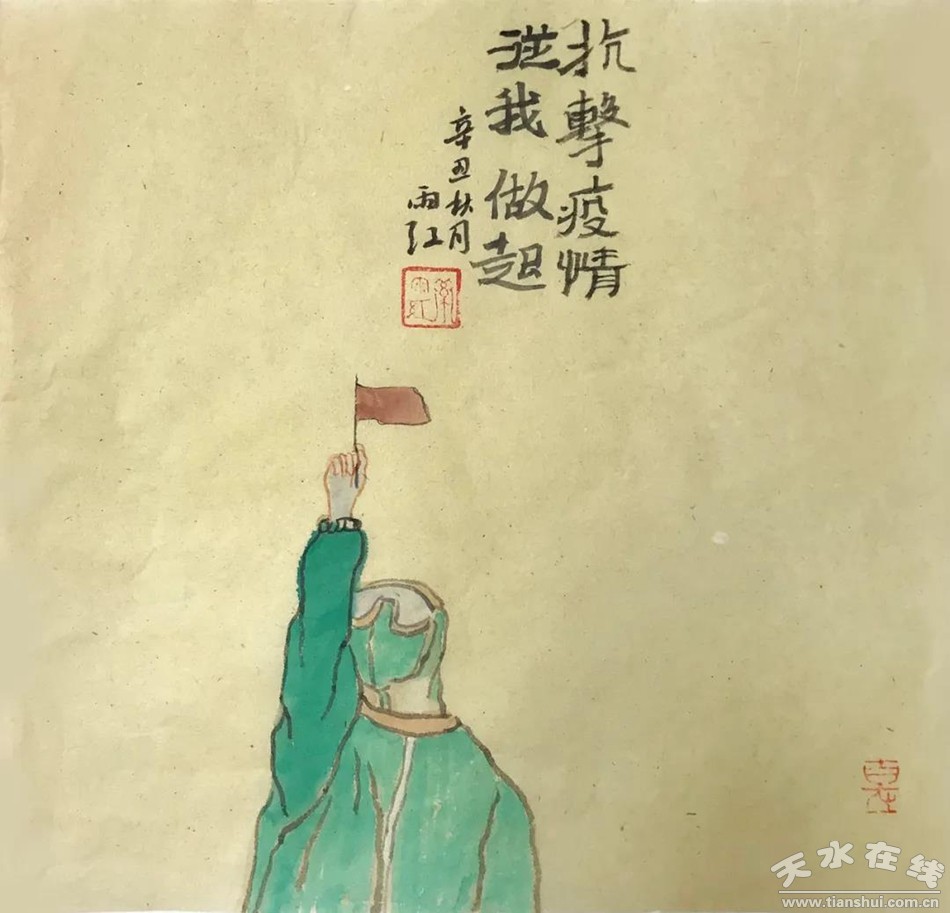 抗擊疫情
從我做起
辛丑秋月
雨江
天水在线
www.tianshui.com.cn